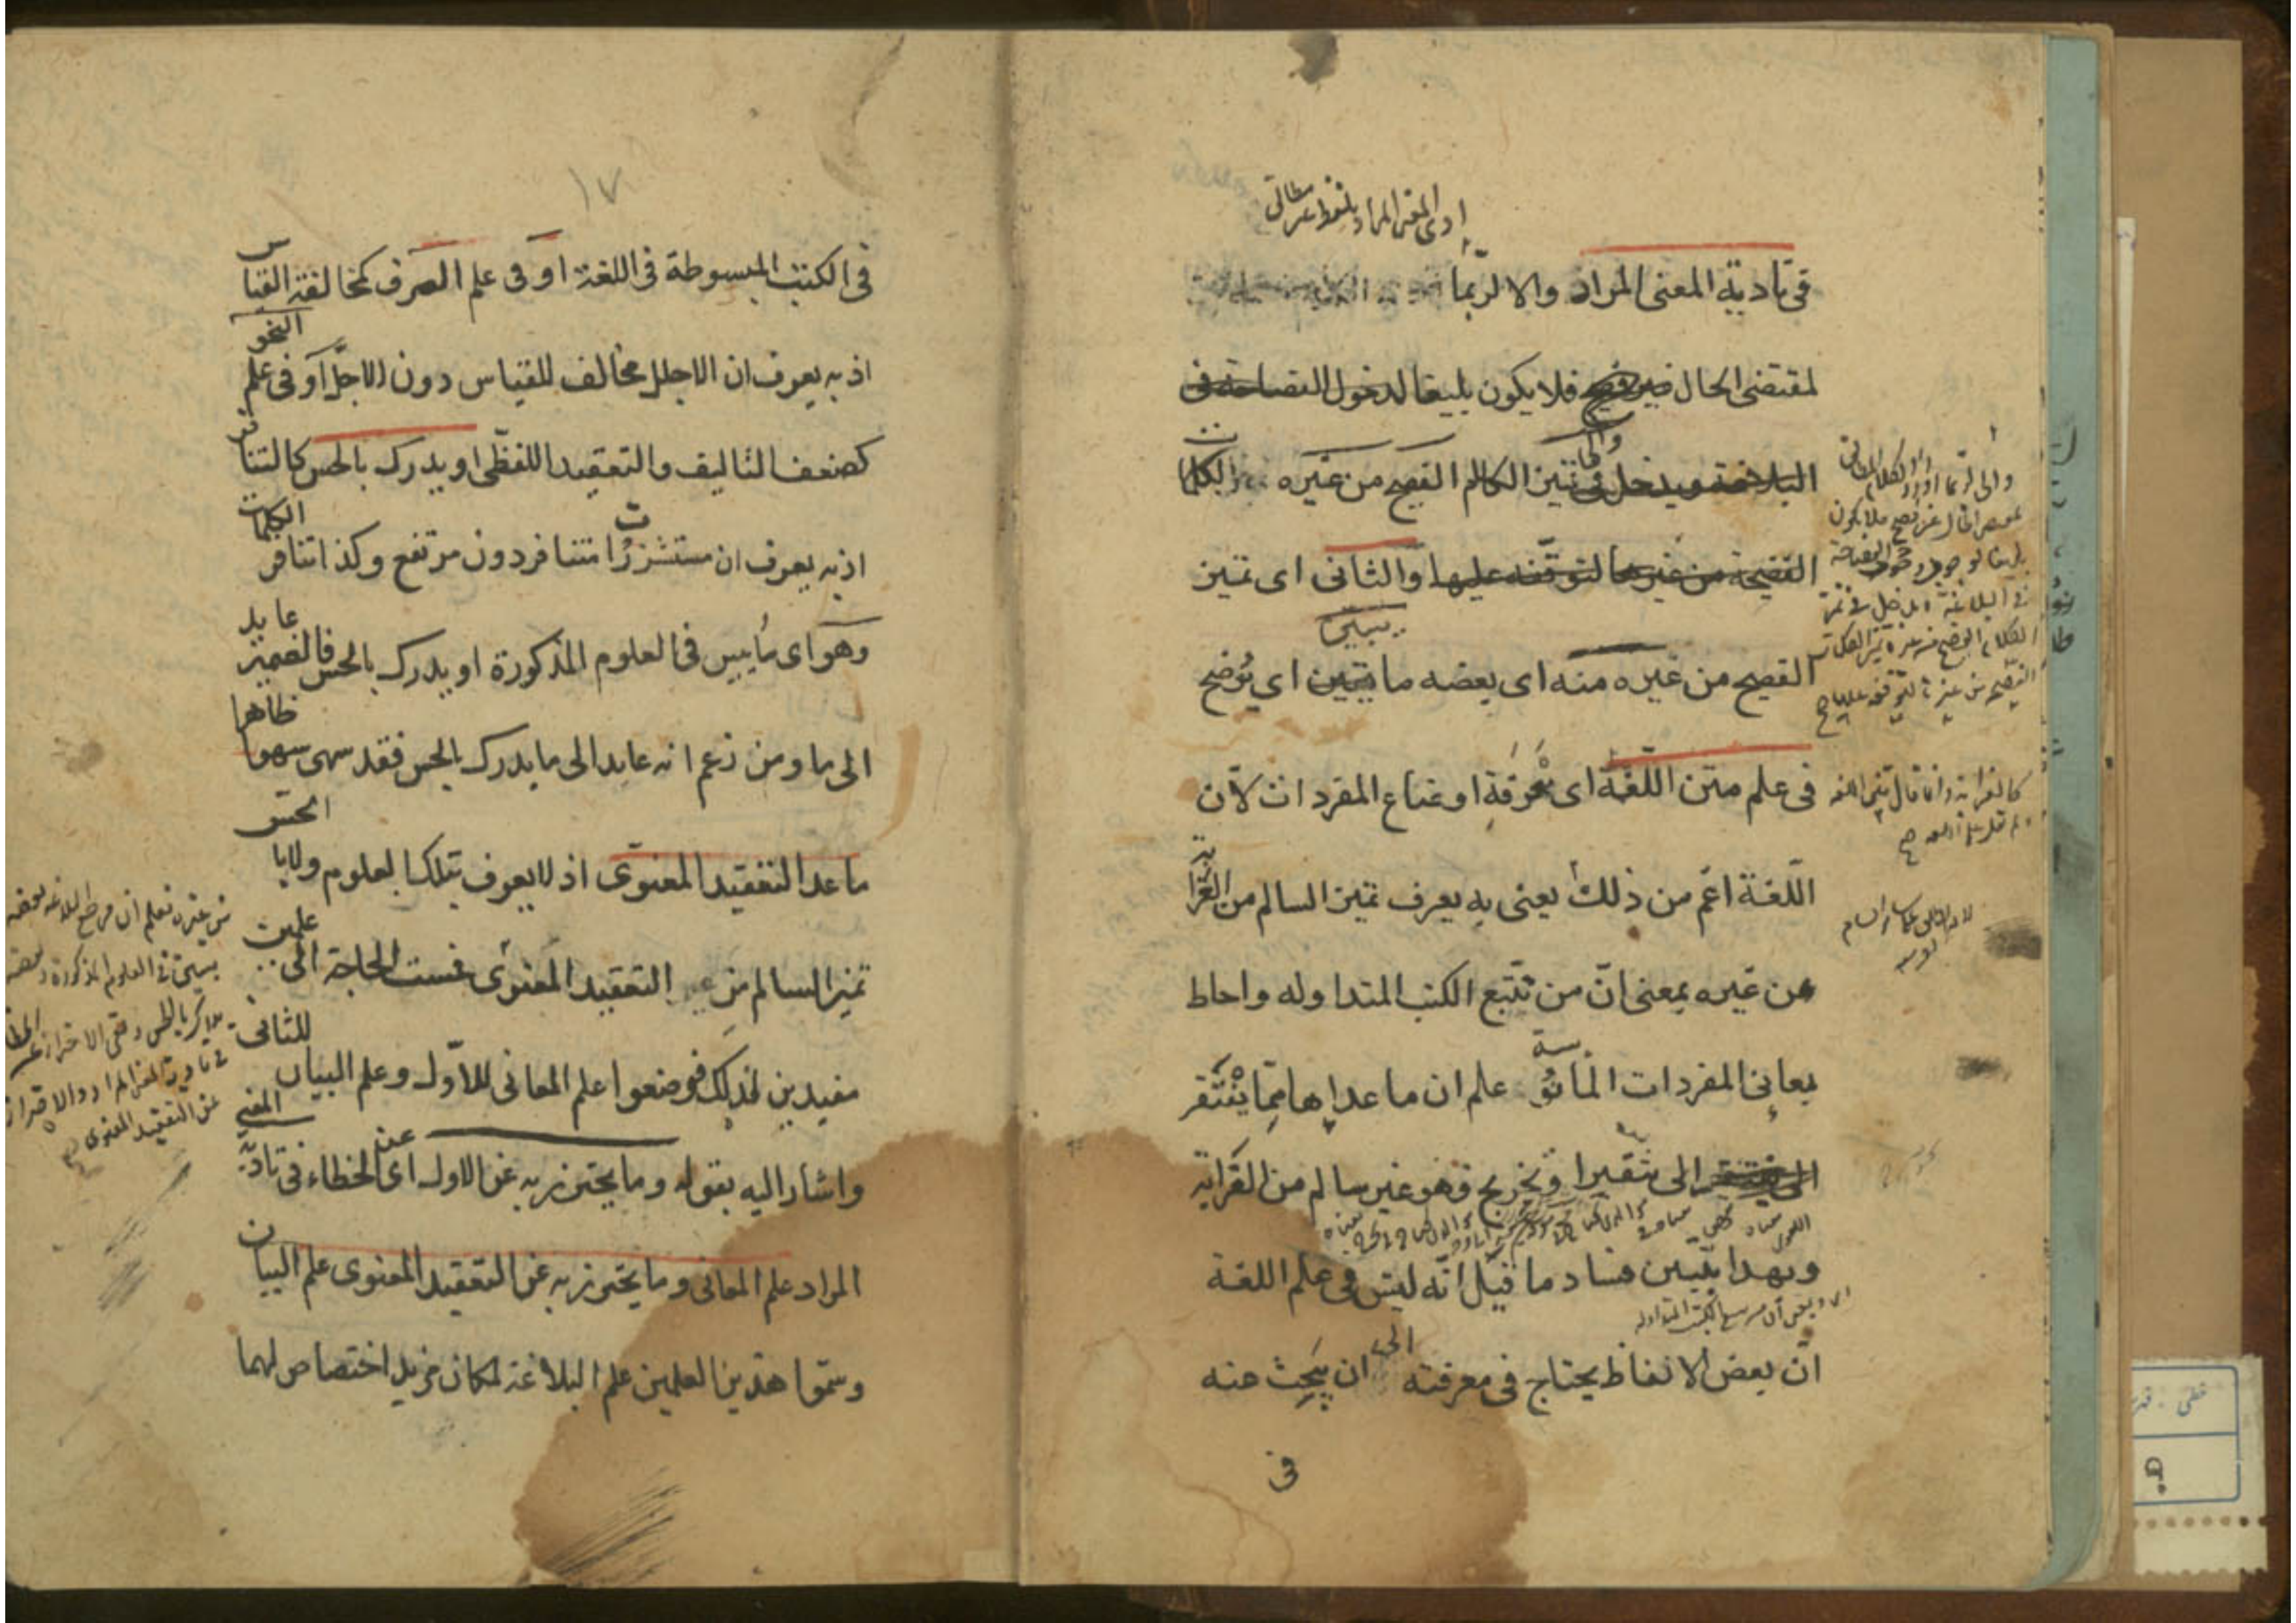 ادى المعنى المراد بلفظ غير مطابق
فى تادية المعنى المراد والا لربما
لمقتضى الحال غير فصيح فلا يكون بليغا لدخول الفصاحة فى
البلاغة ويدخل فى تميز الكلام الفصيح من غيره تميز الكلمات
الفصيحة من غيرها لتوقفه عليها والثانى اى تميز
الفصيح من غيره منه اى بعضه ما يتبين اى يُوضح
يبين
فى علم متن اللغة اى معرفة اوضاع المفردات لان
اللغة اعم من ذلك يعنى به يعرف تميز السالم من الغرابة
من غيره بمعنى ان من تتبع الكتب المتداوله واحاط
بمعانى المفردات المأنوسة علم ان ما عداها مما يفتقر
الى تنقير او تخريج فهو غير سالم من الغرابة
وبهذا يتبين فساد ما قيل انه ليس فى علم اللغة
ان بعض الالفاظ يحتاج فى معرفته الى ان يبحث عنه
فى
كالغرابة وانما قال متن اللغة
١٧
فى الكتب المبسوطة فى اللغة او فى علم الصرف كمخالفة القياس
اذ به يعرف ان الاجلل مخالف للقياس دون الاجلّ او فى علم النحو
كضعف التاليف والتعقيد اللفظى او يدرك بالحس كالتنافر
اذ به يعرف ان مستشزرات متنافر دون مرتفع وكذا تنافر الكلمات
وهو اى ما يبين فى العلوم المذكورة او يدرك بالحس فالضمير عايد
الى ما ومن زعم انه عايد الى ما يدرك بالحس فقد سهى سهوا ظاهرا
ما عدا التعقيد المعنوى اذ لا يعرف بتلك العلوم ولا بالحس
تميز السالم من التعقيد المعنوى فمست الحاجة الى علمين
مفيدين لذلك فوضعوا علم المعانى للاول وعلم البيان للثانى
واشار اليه بقوله وما يحترز به عن الاول اى عن الخطاء فى تادية المعنى
المراد علم المعانى وما يحترز به عن التعقيد المعنوى علم البيان
وسموا هذين العلمين علم البلاغة لمكان مزيد اختصاص لهما
من غيره فعلم ان مرجع البلاغة بعضه
يبين فى العلوم المذكورة وبعضه
يدرك بالحس وبقى الاحتراز عن الخطا
فى تادية المعنى المراد والاحتراز
عن التعقيد المعنوى